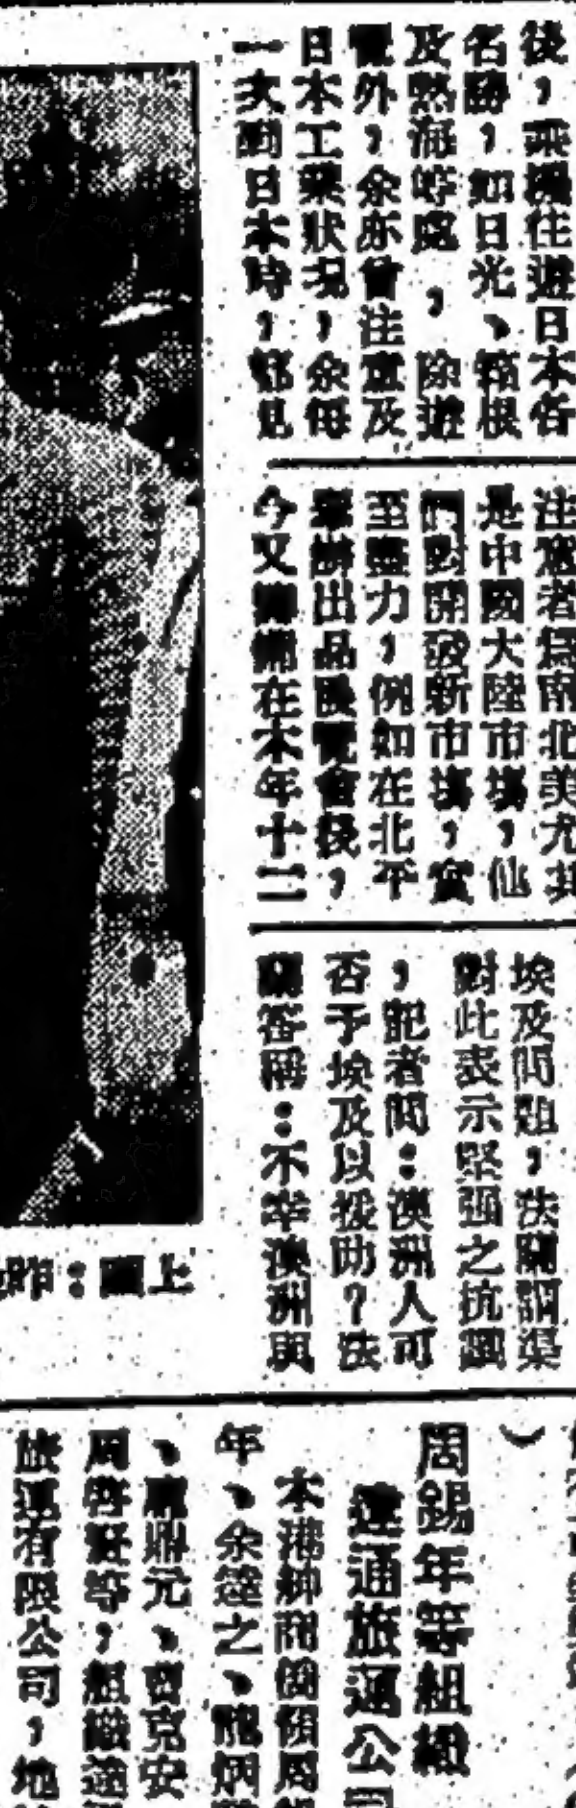 後，乘機往遊日本各
名勝，如日光、箱根
及熱海等處，除遊
覽外，余亦曾注意及
日本工業狀况，余每
一次到日本時，都見
注意者爲南北美尤其
是中國大陸市塲，他
們對開發新市塲，實
至盡力，例如在北平
舉辦出品展覽會後，
今又籌備在本年十二
埃及問題，法蘭謂渠
對此表示堅强之抗議
，記者問：澳洲人可
否予埃及以援助？法
蘭答稱：不幸澳洲與
上圖：昨
）
周錫年等組織
達通旅運公司
本港紳商周錫
年、余達之、
、鼎元、克安
周啓賢等，組織達
旅運有限公司，地